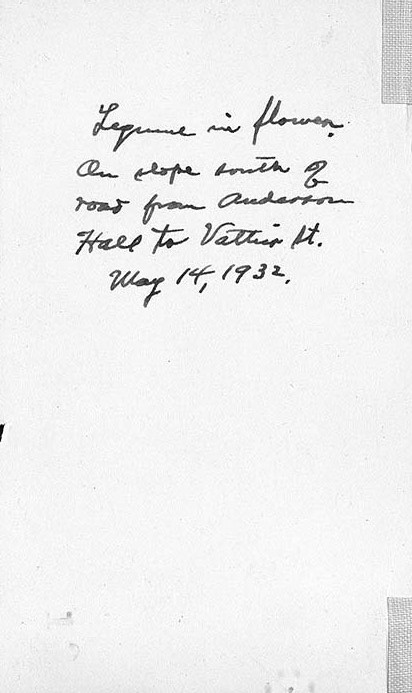 Legume in flower.
On slope south of
road from Anderson
Hall to Vattier St.
May 14, 1932.